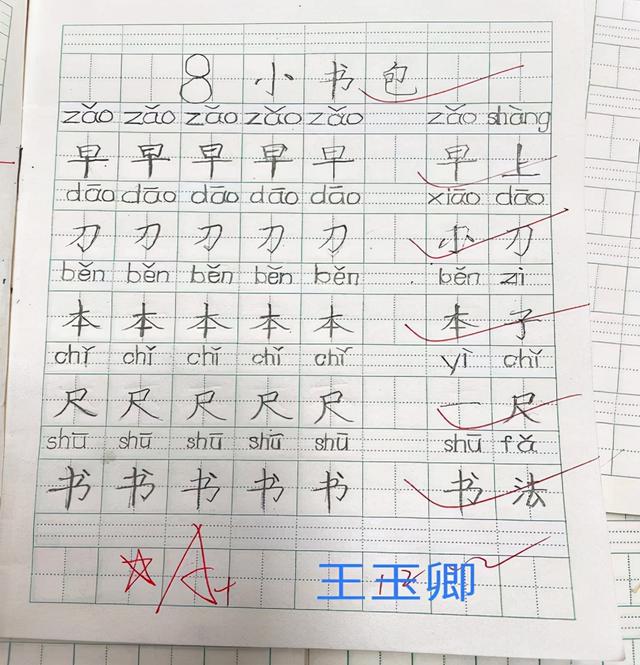 8 小书包
zǎo zǎo zǎo zǎo zǎo zǎo shàng
早 早 早 早 早 早 上
dāo dāo dāo dāo dāo xiāo dāo
刀 刀 刀 刀 刀 小 刀
běn běn běn běn běn běn zi
本 本 本 本 本 本 子
chǐ chǐ chǐ chǐ chǐ yì chǐ
尺 尺 尺 尺 尺 一 尺
shū shū shū shū shū shū fǎ
书 书 书 书 书 书 法
A+
王玉卿